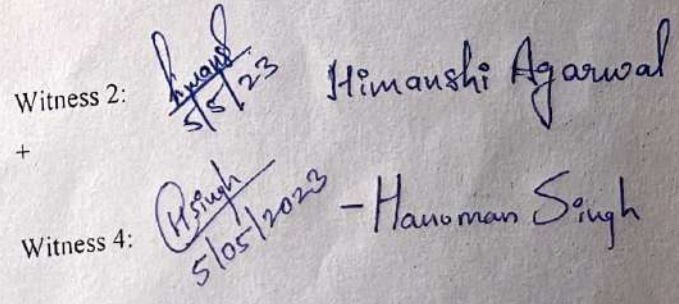 Witness 2: Himanshi 5/5/23 Himanshi Agarwal
+
Witness 4: HSingh 5/05/2023 - Hanuman Singh